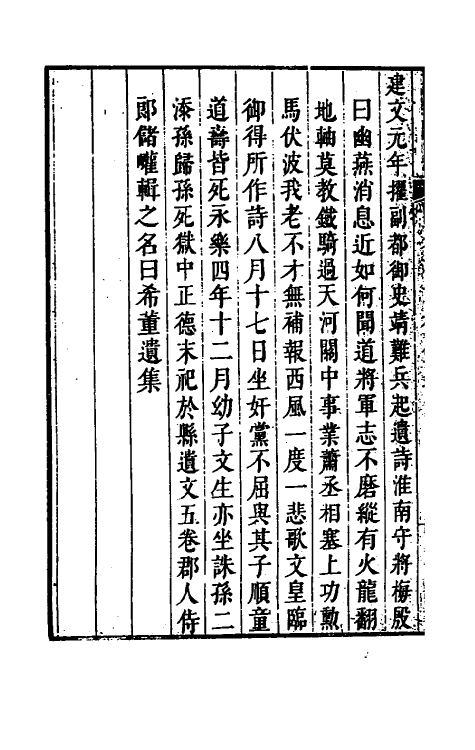 建文元年擢副都御史靖難兵起遺詩淮南守將梅殷
曰幽燕消息近如何聞道將軍志不磨縱有火龍翻
地軸莫教鐵騎過天河關中事業蕭丞相塞上功勲
馬伏波我老不才無補報西風一度一悲歌文皇臨
御得所作詩八月十七日坐奸黨不屈與其子順童
道壽皆死永樂四年十二月幼子文生亦坐誅孫二
添孫歸孫死獄中正德末祀於縣遺文五卷郡人侍
郎儲巏輯之名曰希董遺集